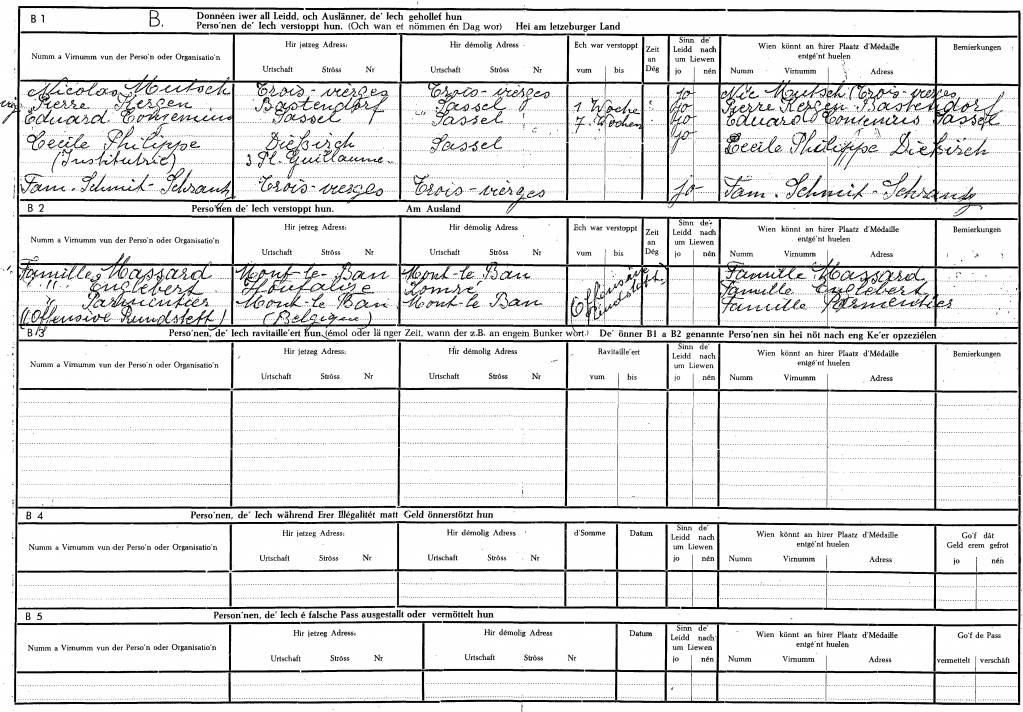 B 1 B. Donnéen iwer all Leidd, och Auslänner, de' Iech gehollef hun
Perso'nen de' Iech verstoppt hun. (Och wan et nömmen én Dag wor) Hei am letzeburger Land
Numm a Virnumm vun der Perso'n oder Organisatio'n Hir jetzeg Adress: Hir démolig Adress: Ech war verstoppt Zeit an Dég Sinn de' Leidd nach um Liewen Wien könnt an hirer Plaatz d'Médaille entgé'nt huelen Bemierkungen
Urtschaft Ströss Nr Urtschaft Ströss Nr vum bis jo nén Numm Virnumm Adress
Nicolas Mutsch Trois-vierges Trois-vierges jo Nic Mutsch Trois-vierges
Pierre Kergen Bastendorf Sassel 1 Woche jo Pierre Kergen Bastendorf
Eduard Sassel Sassel 7 Wochen jo Eduard Sassel
Cecile Philippe Diekirch Sassel jo Cecile Philippe Diekirch
(Institutrice) 3 Pl. Guillaume
Fam. Schmit-Schrantz Trois-vierges Trois-vierges jo Fam. Schmit-Schrantz
B 2 Perso'nen de' Iech verstoppt hun. Am Ausland
Numm a Virnumm vun der Perso'n oder Organisatio'n Hir jetzeg Adress: Hir démolig Adress: Ech war verstoppt Zeit an Dég Sinn de' Leidd nach um Liewen Wien könnt an hirer Plaatz d'Médaille entgé'nt huelen Bemierkungen
Urtschaft Ströss Nr Urtschaft Ströss Nr vum bis jo nén Numm Virnumm Adress
Famille Massard Mont-le-Ban Mont-le Ban (Offensive Rundstett) Famille Massard
" " Englebert Houfalize Lomré Famille Englebert
" Parmentier Mont-le Ban Mont-le Ban Famille Parmentier
(Offensive Rundstett) (Belgique)
B 3 Perso'nen, de' Iech ravitaille'ert hun, (émol oder länger Zeit, wann der z.B. an engem Bunker wort.) De' önner B1 a B2 genannte Perso'nen sin hei nöt nach eng Ke'er opzezielen
Numm a Virnumm vun der Perso'n oder Organisatio'n Hir jetzeg Adress: Hir démolig Adress: Ravitaille'ert Sinn de' Leidd nach um Liewen Wien könnt an hirer Plaatz d'Médaille entgé'nt huelen Bemierkungen
Urtschaft Ströss Nr Urtschaft Ströss Nr vum bis jo nén Numm Virnumm Adress
B 4 Perso'nen, de' Iech während Erer Illégalitét matt Geld önnerstötzt hun
Numm a Virnumm vun der Perso'n oder Organisatio'n Hir jetzeg Adress: Hir démolig Adress: d'Somme Datum Sinn de' Leidd nach um Liewen Wien könnt an hirer Plaatz d'Médaille entgé'nt huelen Go'f dät Geld erem gefrot
Urtschaft Ströss Nr Urtschaft Ströss Nr jo nén Numm Virnumm Adress jo nén
B 5 Person'nen, de' Iech é falsche Pass ausgestallt oder vermöttelt hun
Numm a Virnumm vun der Perso'n oder Organisatio'n Hir jetzeg Adress: Hir démolig Adress: Datum Sinn de' Leidd nach um Liewen Wien könnt an hirer Plaatz d'Médaille entgé'nt huelen Go'f de Pass
Urtschaft Ströss Nr Urtschaft Ströss Nr jo nén Numm Virnumm Adress vermettelt verschäft